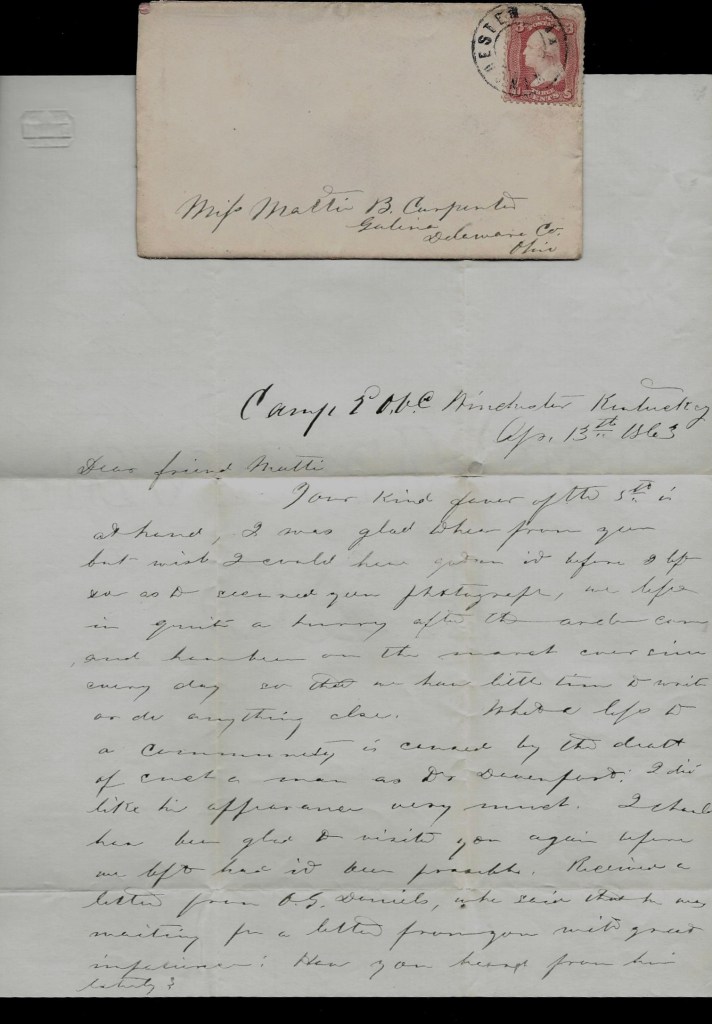 HESTER
3 3
U.S. POSTAGE
THREE CENTS
Miss Mattie B. Carpenter
Galena
Delaware Co.
Ohio
Camp E O.V.C Winchester Kentucky
Ap. 13th 1863
Dear friend Mattie
Your kind favor of the 5th is
at hand, I was glad to hear from you
but wish I could have gotten it before I left
so as to secured your photograph, we left
in quite a hurry after the order came
and have been on the march ever since
every day so that we have little time to write
or do anything else. What a loss to
a community is caused by the death
of such a man as Dr Davenport. I did
like his appearance very much. I should
have been glad to visite you again before
we left had it been possible. Received a
letter from O.G. Daniels, who said that he was
waiting for a letter from you with great
impatience. Have you heard from him
lately?